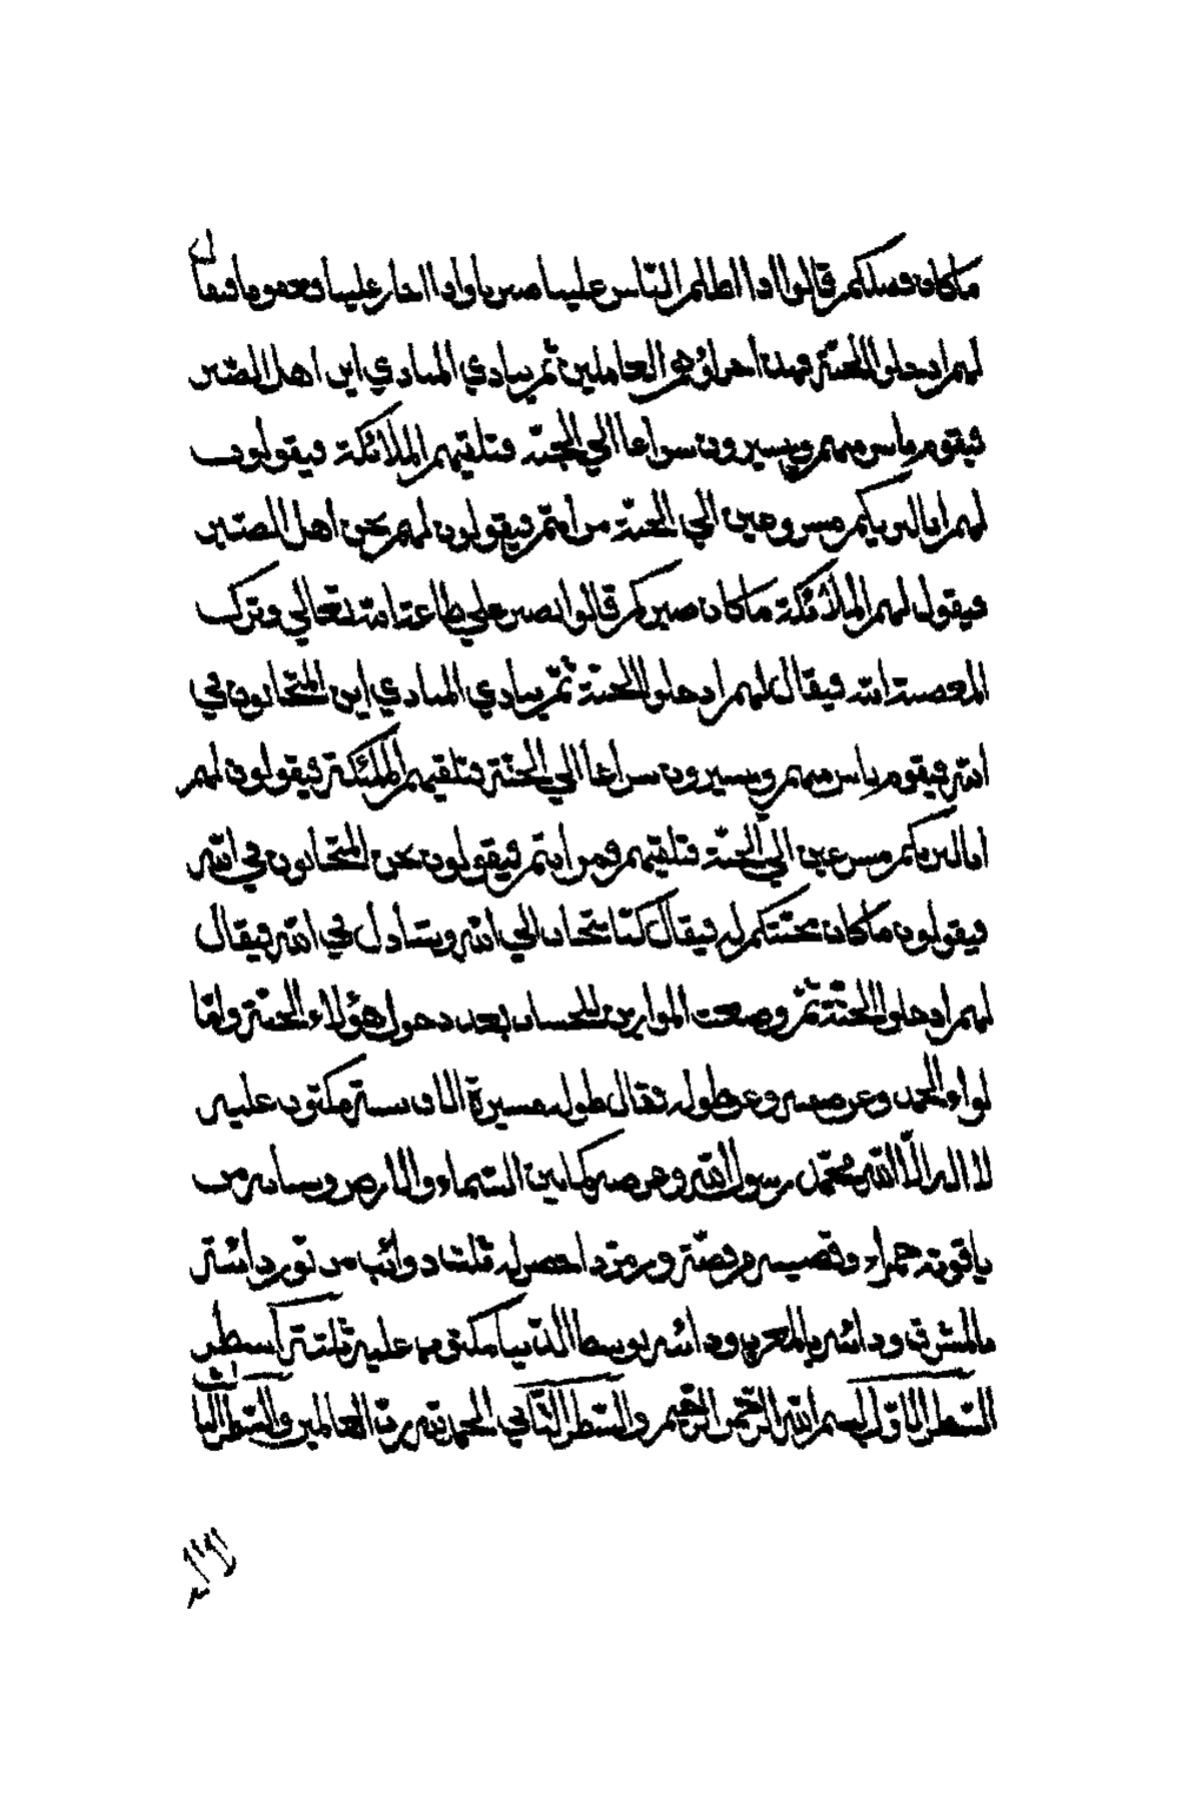 ما كان فضلكم قالوا اذا اظلم الناس علينا صبرنا واذا جار علينا وعفونا فيقال
لهم ادخلوا الجنة فهذا اجر العاملين ثم ينادي المنادي اين اهل الصبر
فيقوم ناس منهم ويسيرون سراعا الي الجنة فتلقيهم الملائكة فيقولون
لهم انا نريكم مسروعين الي الجنة من انتم فيقولون لهم نحن اهل الصبر
فيقول لهم الملائكة ما كان صبركم قالوا نصبر علي طاعة الله تعالي وترك
المعصية الله فيقال لهم ادخلوا الجنة ثم ينادي المنادي اين المتحابون في
الله فيقوم ناس منهم ويسيرون سراعا الي الجنة فتلقيهم الملئكة فيقولون لهم
انا نريكم مسرعين الي الجنة فتلقيهم ومن انتم فيقولون نحن المتحابون في الله
فيقولون ما كان محبتكم له فيقال كنا نتحاب الي الله ونتبادل في الله فيقال
لهم ادخلوا الجنة ثم وضعت الموازين للحساب بعد دخول هؤلاء الجنة واما
لواء الحمد وعرضه وعن طوله فقال طوله مسيرة الف سنة مكتوب عليه
لا اله الا الله محمد رسول الله وعرضه كما بين السماء والارض وسنانه من
ياقوتة حمراء وقضيبه من فضة وزمردا خضر له ثلث ذوائب من نور ذائبة
بالمشرق وذائبه بالمغرب وذائبه بوسط الدنيا مكتوب عليه ثلثة اسطر
السطر الاول بسم الله الرحمن الرحيم والسطر الثاني الحمد لله رب العالمين والسطر الثالث
لا اله